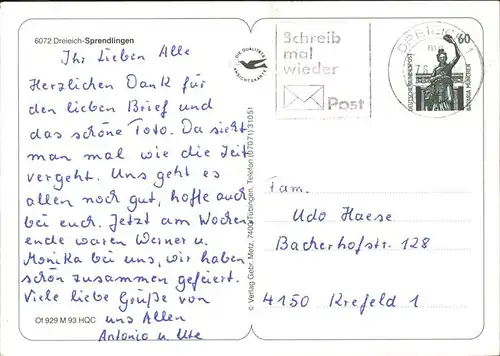 6072 Dreieich-Sprendlingen
Ihr Lieben Alle
Herzlichen Dank für
den lieben Brief und
das schöne Foto. Da sieht
man mal wie die Zeit
vergeht. Uns geht es
allen noch gut, hoffe auch
bei euch. Jetzt am Wochen
ende waren Werner u.
Monika bei uns, wir haben
schön zusammen gefeiert.
Viele liebe Grüße von
uns Allen
Antonio u. Ute
Of 929 M 93 HQC
DIE QUALITÄTS
ANSICHTSKARTE
© Verlag Gebr. Metz, 7400 Tübingen, Telefon (07071) 31051
Schreib
mal
wieder
Post
DREIEICH 1
60
DEUTSCHE BUNDESPOST
BAVARIA MÜNCHEN
Fam.
Udo Haese
Backerhofstr. 128
4150 Krefeld 1